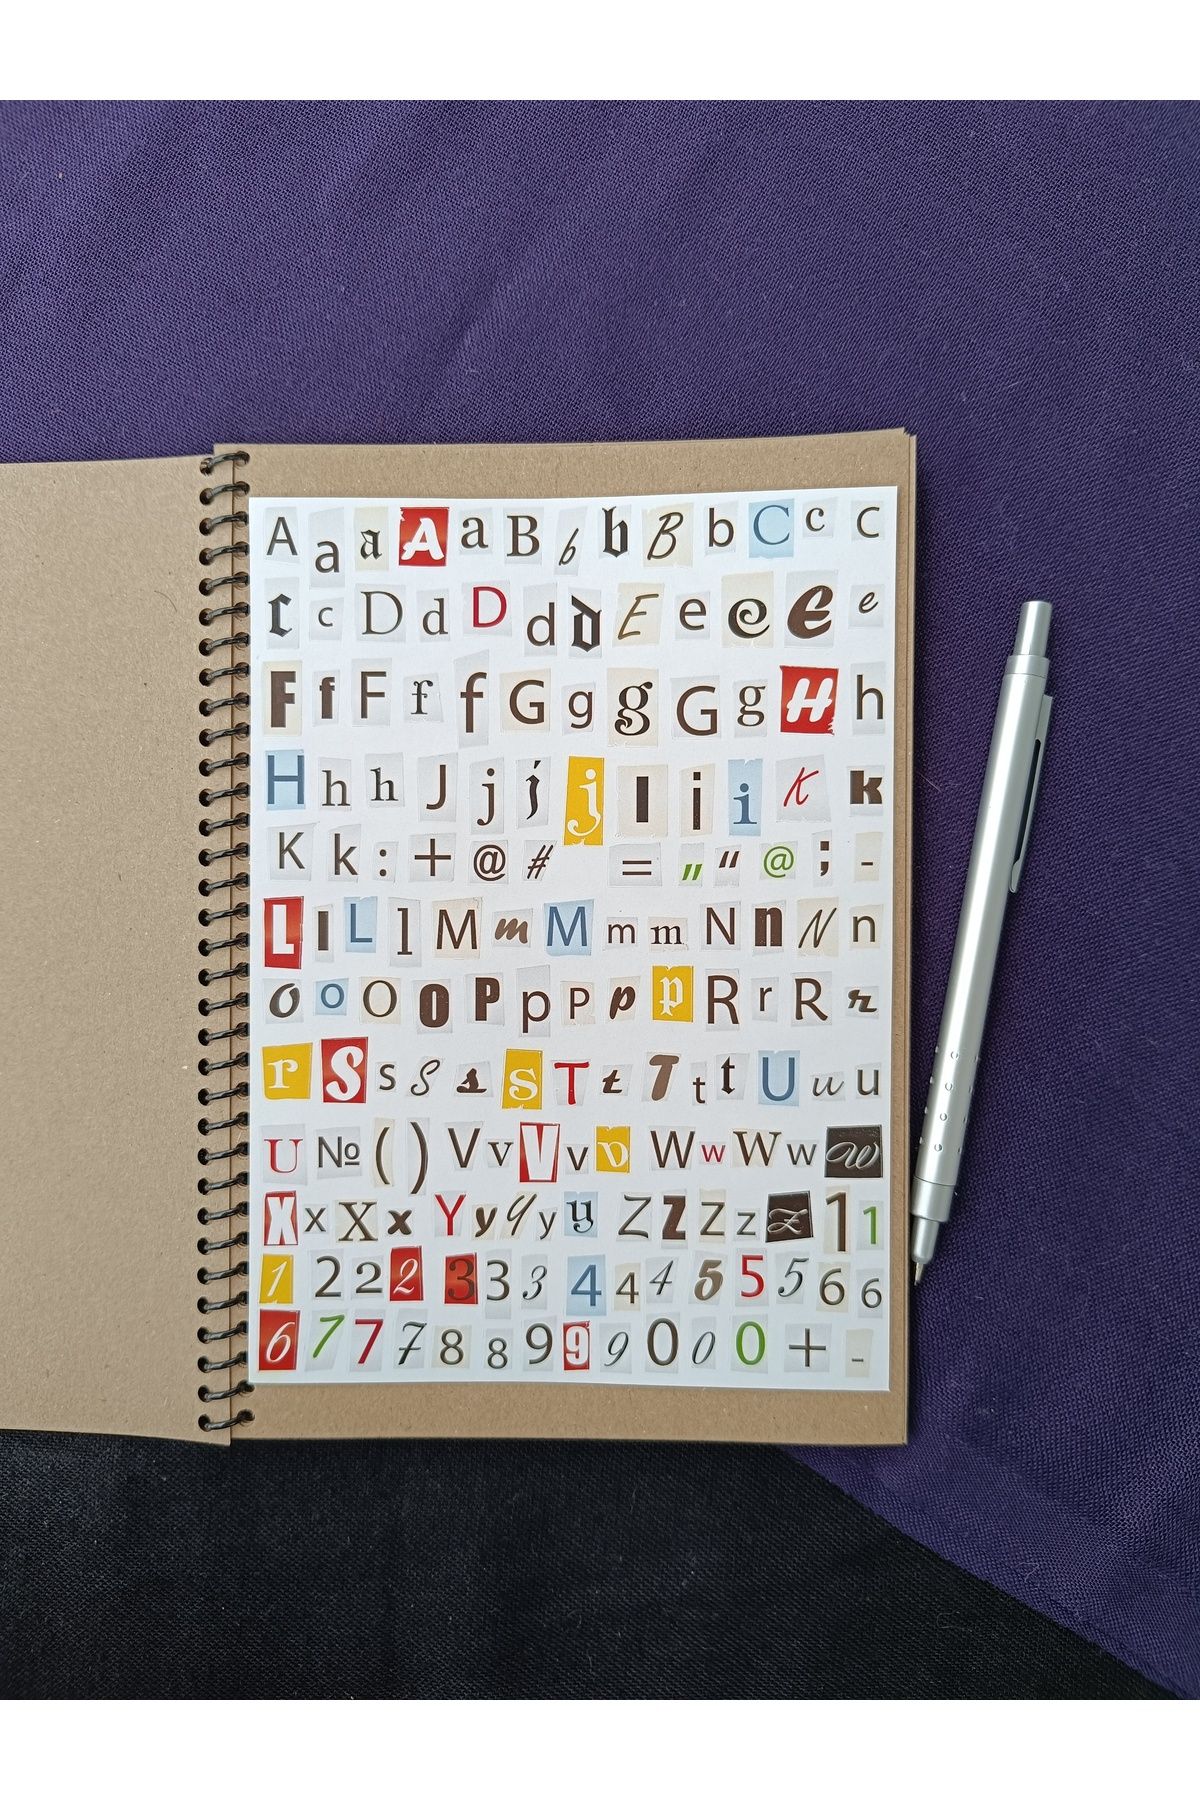 A a a A a B b b B b C c c
C c D d D d d E e e e e
F f F f f G g g G g H h
H h h J j j j I i i K k
K k : + @ # = „ “ @ ; -
L l L l M m M m m N n N n
O o O o P p P p p R r R r
r S s S s s T t T t t U u u
U № ( ) V v V v v W w W w w
X x X x Y y y y y Z z Z z z 1 1
1 2 2 2 3 3 3 4 4 4 5 5 5 6 6
6 7 7 7 8 8 9 9 9 0 0 0 + -